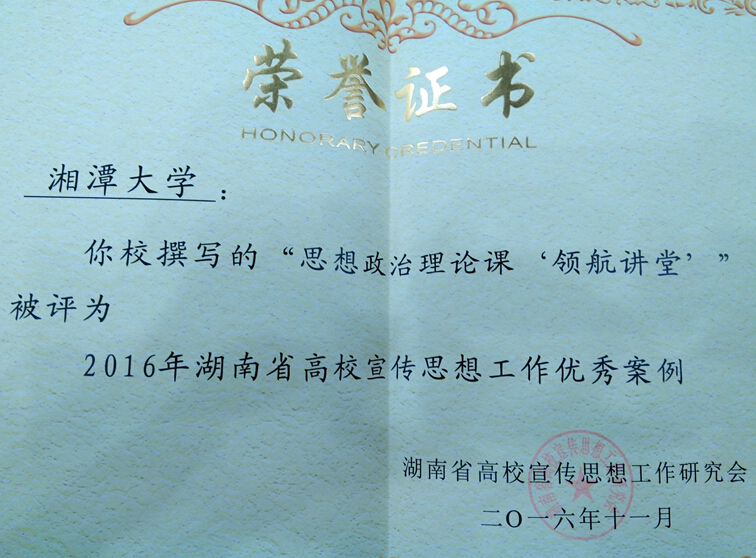 荣誉证书
HONORARY CREDENTIAL
湘潭大学：
你校撰写的“思想政治理论课‘领航讲堂’”
被评为
2016年湖南省高校宣传思想工作优秀案例
湖南省高校宣传思想工作研究会
二O一六年十一月